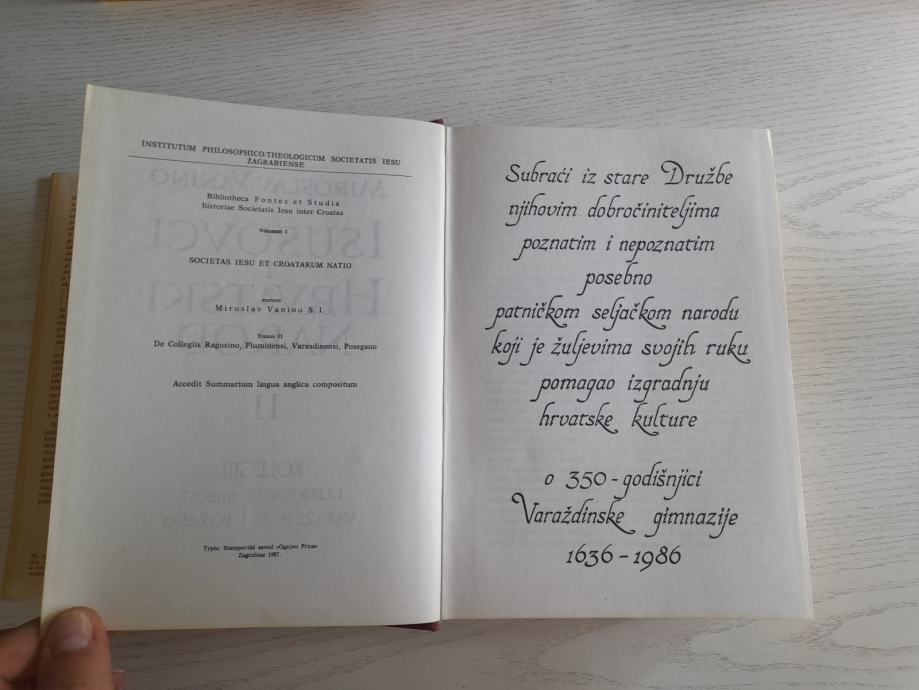 INSTITUTUM PHILOSOPHICO-THEOLOGICUM SOCIETATIS IESU
ZAGRABIENSE
Bibliotheca Fontes et Studia
historiae Societatis Iesu inter Croatas
Volumen I
SOCIETAS IESU ET CROATARUM NATIO
auctore
Miroslav Vanino S. I.
Tomus II
De Collegiis Ragusino, Fluminensi, Varasdinensi, Posegano
Accedit Summarium lingua anglica compositum
II
Typis: Štamparski zavod »Ognjen Prica«
Zagrabiae 1987.
Subraći iz stare Družbe
njihovim dobročiniteljima
poznatim i nepoznatim
posebno
patničkom seljačkom narodu
koji je žuljevima svojih ruku
pomagao izgradnju
hrvatske kulture
o 350-godišnjici
Varaždinske gimnazije
1636-1986